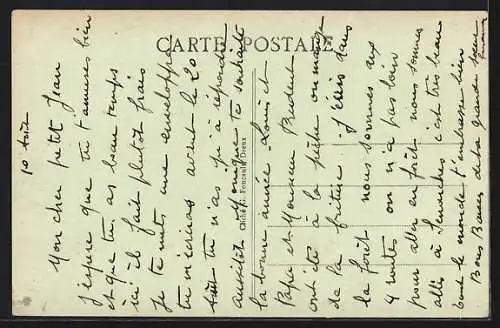 CARTE POSTALE
10 août
Mon cher petit Jean
J'espère que tu t'amuses bien
et que tu as beau temps
ici il fait plutôt frais
Je te mets une enveloppe
tu m'écriras avant le 20
tu n'as qu'à répondre
aussitôt Monique te souhaite
la bonne année Louis et
Papa et Monsieur Budent
ont été à la pêche on mange
de la friture J'étais dans
la forêt nous sommes aux
4 routes on n'a pas loin
pour aller en forêt nous sommes
allés à Senonches c'est très beau
tout le monde t'embrasse bien
Bons Baisers de ta grande sœur
Cliché G. Foucault, Dreux